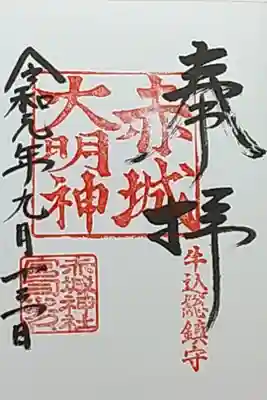 奉拝
赤城
大明神
牛込総鎮守
赤城神社
令和元年九月十三日